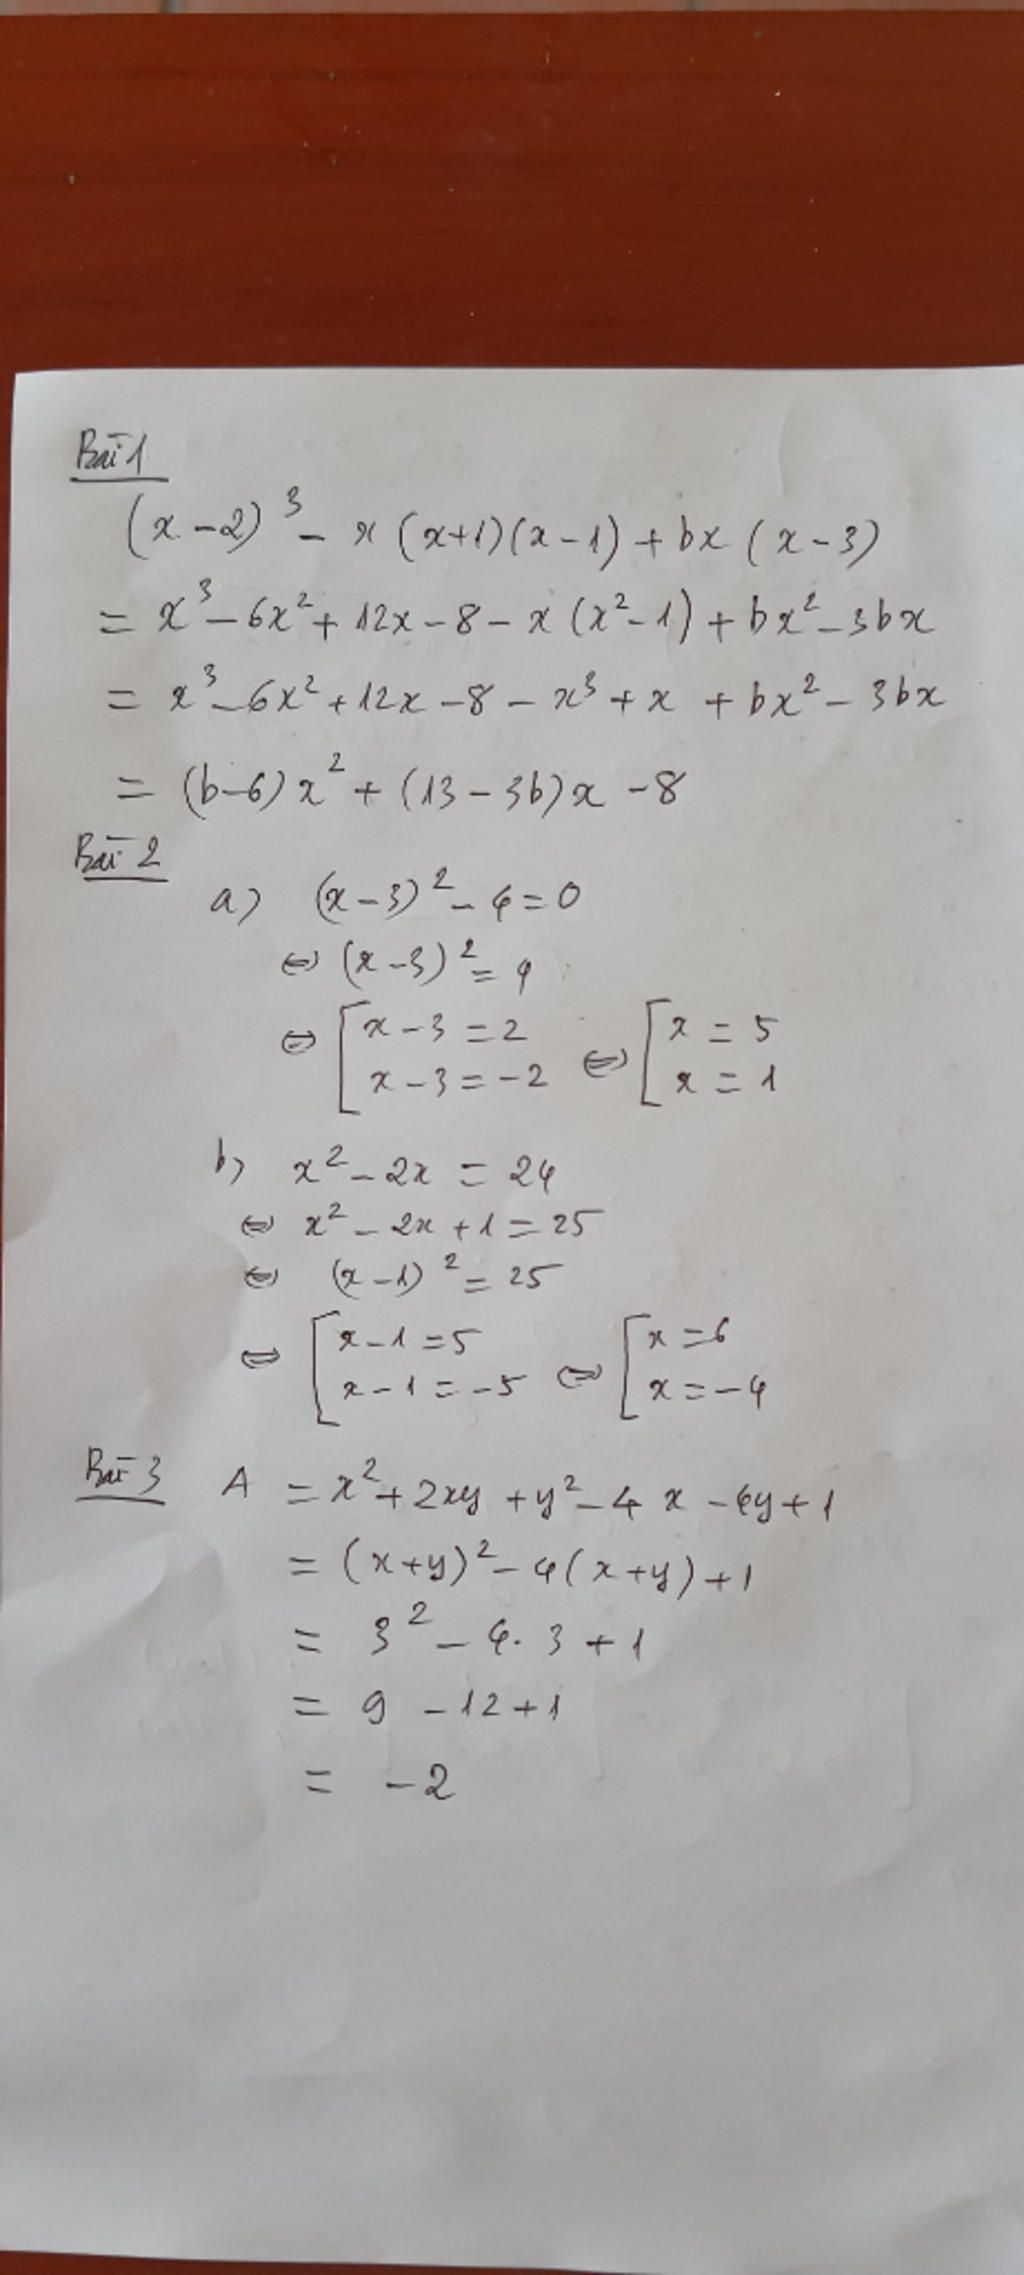 Bài 1
(x-2)³ - x(x+1)(x-1) + bx(x-3)
= x³ - 6x² + 12x - 8 - x(x² - 1) + bx² - 3bx
= x³ - 6x² + 12x - 8 - x³ + x + bx² - 3bx
= (b-6)x² + (13 - 3b)x - 8
Bài 2
a) (x-3)² - 4 = 0
⇔ (x-3)² = 4
⇔ [ x - 3 = 2 ⇔ [ x = 5
x - 3 = -2 x = 1
b) x² - 2x = 24
⇔ x² - 2x + 1 = 25
⇔ (x-1)² = 25
⇔ [ x - 1 = 5 ⇔ [ x = 6
x - 1 = -5 x = -4
Bài 3 A = x² + 2xy + y² - 4x - 4y + 1
= (x+y)² - 4(x+y) + 1
= 3² - 4.3 + 1
= 9 - 12 + 1
= -2